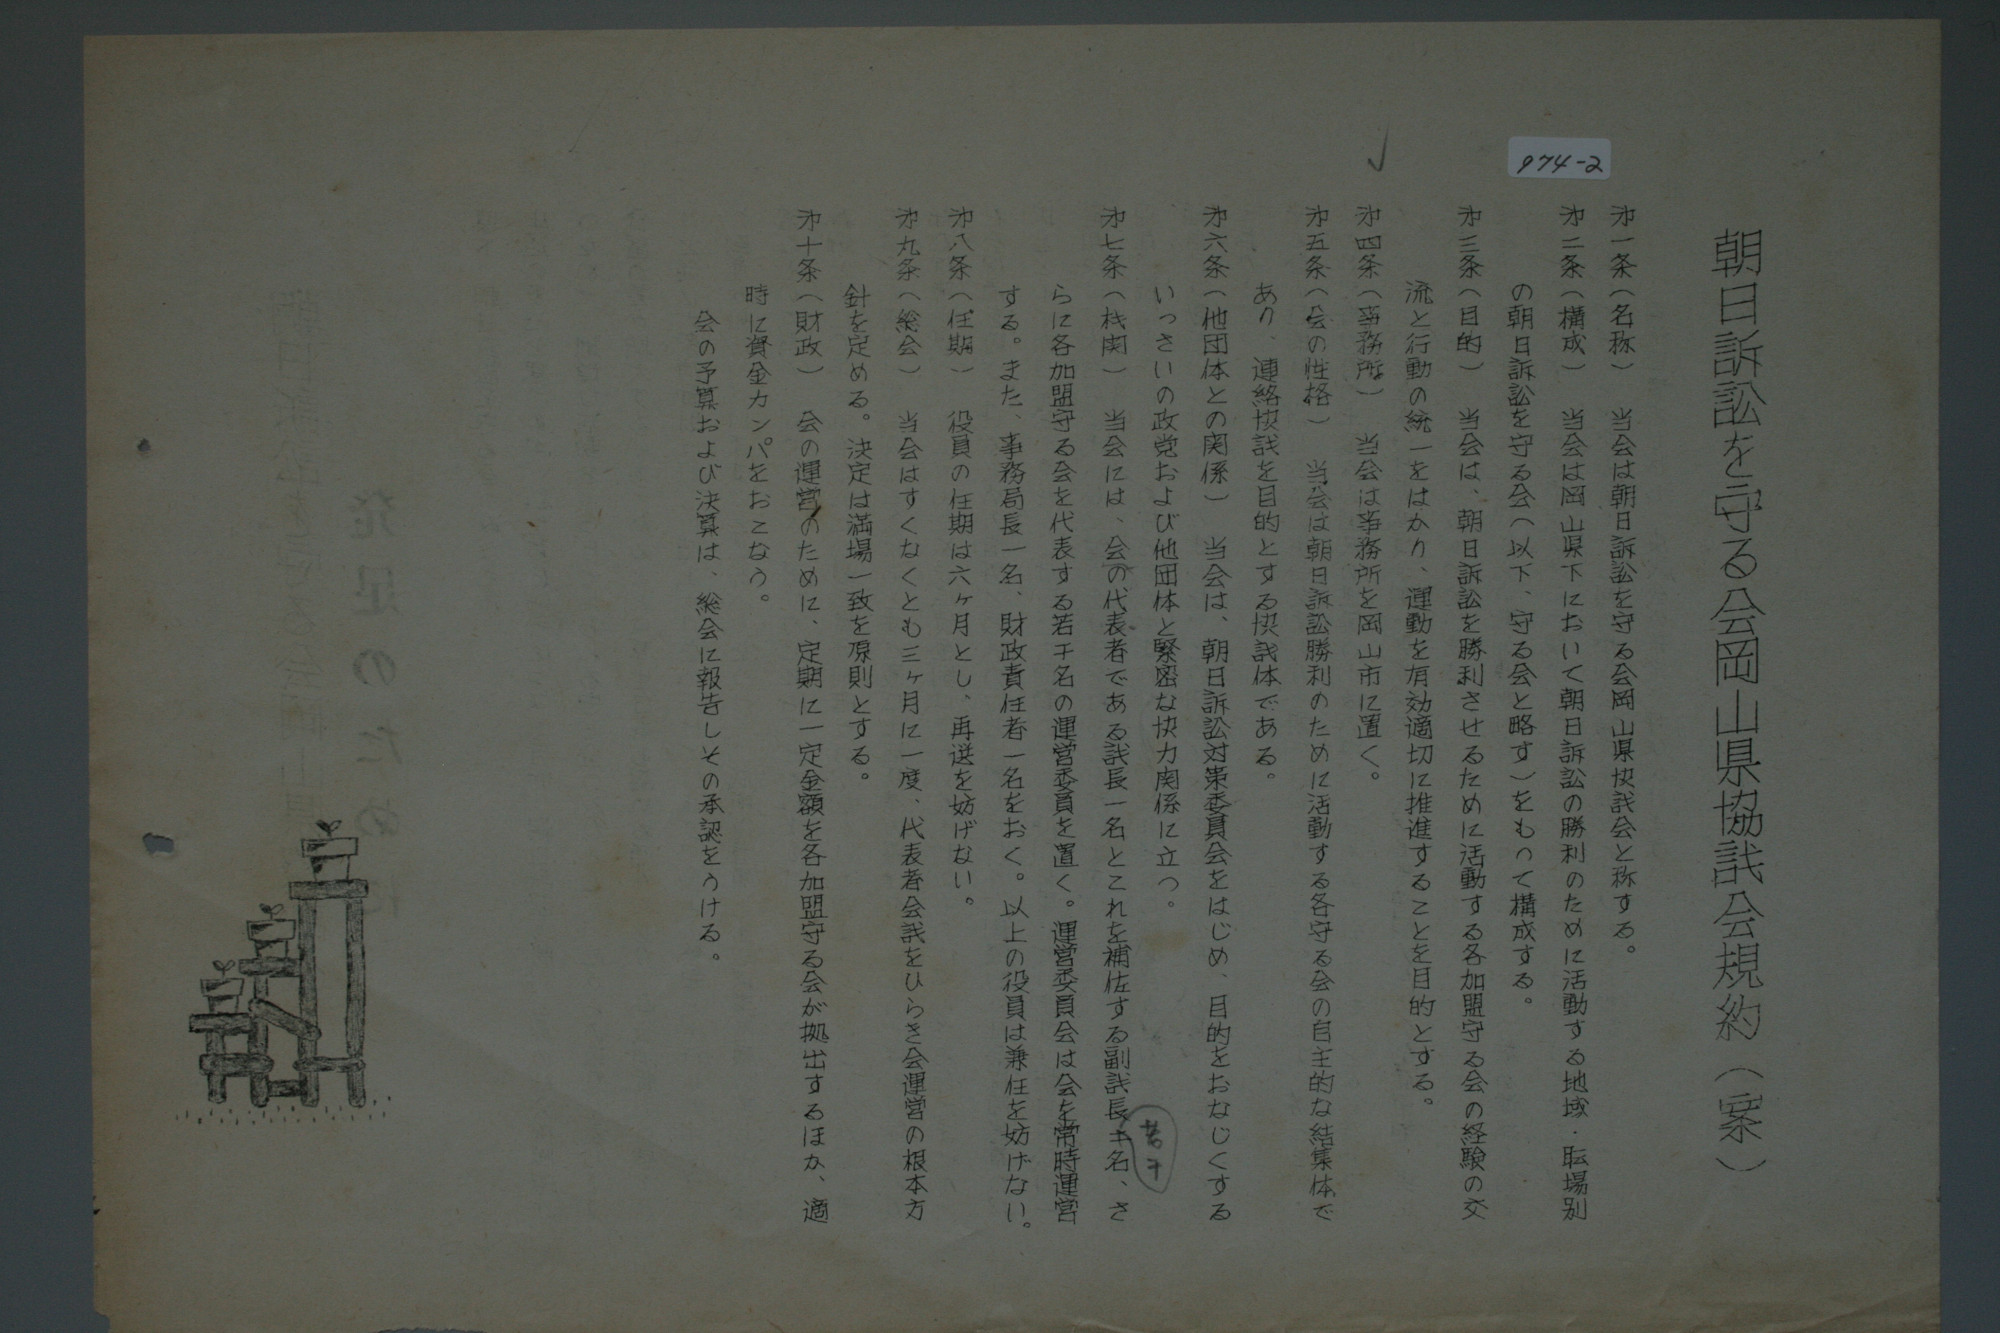 974-2
朝日訴訟を守る会岡山県協議会規約（案）
第一条（名称）　当会は朝日訴訟を守る会岡山県協議会と称する。
第二条（構成）　当会は岡山県下において朝日訴訟の勝利のために活動する地域・職場別
の朝日訴訟を守る会（以下、守る会と略す）をもって構成する。
第三条（目的）　当会は、朝日訴訟を勝利させるために活動する各加盟守る会の経験の交
流と行動の統一をはかり、運動を有効適切に推進することを目的とする。
第四条（事務所）　当会は事務所を岡山市に置く。
第五条（会の性格）　当会は朝日訴訟勝利のために活動する各守る会の自主的な結集体で
あり、連絡協議を目的とする協議体である。
第六条（他団体との関係）　当会は、朝日訴訟対策委員会をはじめ、目的をおなじくする
いっさいの政党および他団体と緊密な協力関係に立つ。
第七条（機関）　当会には、会の代表者である議長一名とこれを補佐する副議長 名、さ
若干
らに各加盟守る会を代表する若干名の運営委員を置く。運営委員会は会を常時運営
する。また、事務局長一名、財政責任者一名をおく。以上の役員は兼任を妨げない。
第八条（任期）　役員の任期は六ヶ月とし、再選を妨げない。
第九条（総会）　当会はすくなくとも三ヶ月に一度、代表者会議をひらき会運営の根本方
針を定める。決定は満場一致を原則とする。
第十条（財政）　会の運営のために、定期に一定金額を各加盟守る会が拠出するほか、適
時に資金カンパをおこなう。
会の予算および決算は、総会に報告しその承認をうける。
発足のために